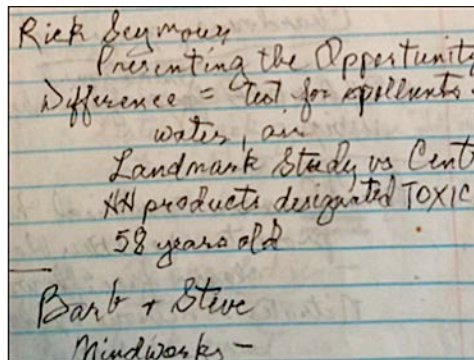 Rick Seymour
Presenting the Opportunity
Difference = test for pollunts
water, air
Landmark Study vs Cent
HH products designated TOXIC
58 years old
Barb + Steve
Mindworks -